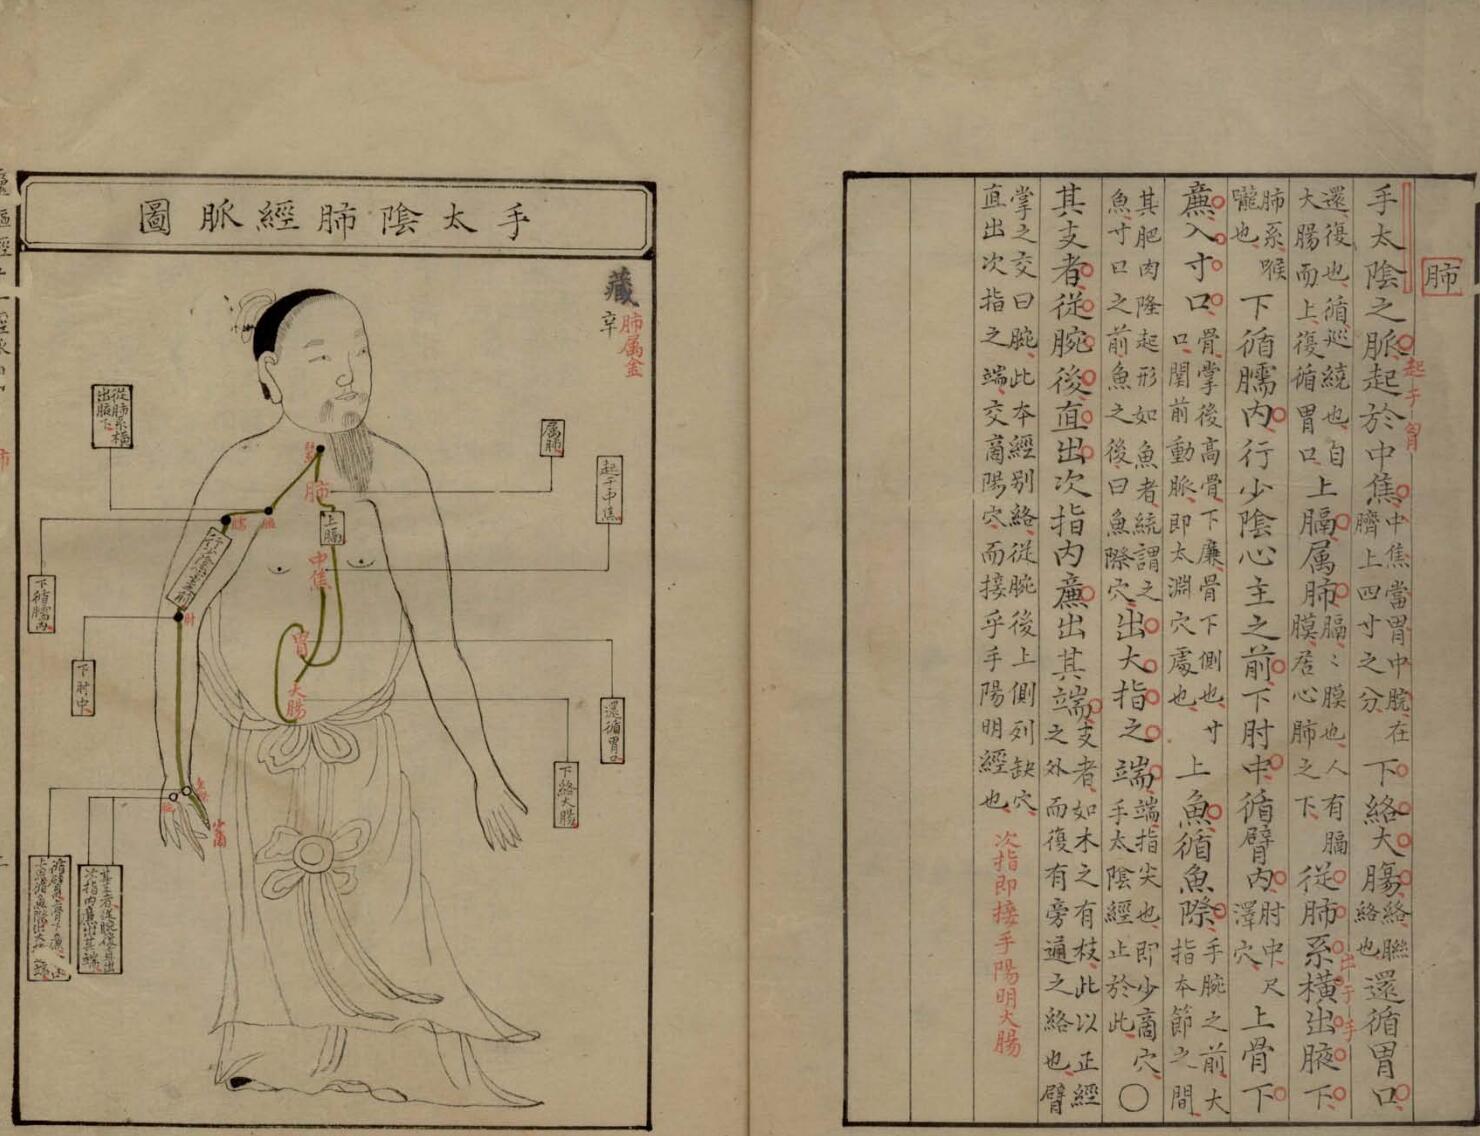 肺
手太陰之脈起於中焦中焦當胃中脘在臍上四寸之分下絡大腸絡聯絡也還循胃口
起于胷
還復也循巡繞也自大腸而上復循胃口上膈属肺膈〻膜也人有膈膜居心肺之下從肺系橫出腋下
出于手
肺系喉嚨也下循臑內行少陰心主之前下肘中循臂內肘中尺澤穴上骨下
廉入寸口骨掌後高骨下廉骨下側也寸口關前動脈即太淵穴處也上魚循魚際手腕之前大指本節之間
其肥肉隆起形如魚者統謂之魚寸口之前魚之後曰魚際穴出大指之端端指尖也即少商穴手太陰經止於此○
其支者從腕後直出次指內廉出其端支者如木之有枝此以正經之外而復有旁通之絡也臂
掌之交曰腕此本經别絡從腕後上側列缺穴直出次指之端交商陽穴而接乎手陽明經也次指即接手陽明大腸
手太陰肺經脈圖
藏
肺属金
辛
属肺
起于中焦
還循胃口
下絡大腸
肺
上膈
中焦
胃
大腸
從肺系橫出腋下
腋
臑
行少陰心主前
下循臑內
肘
下肘中
少商
其支者從腕後直出次指內廉出其端
循臂內上骨下廉